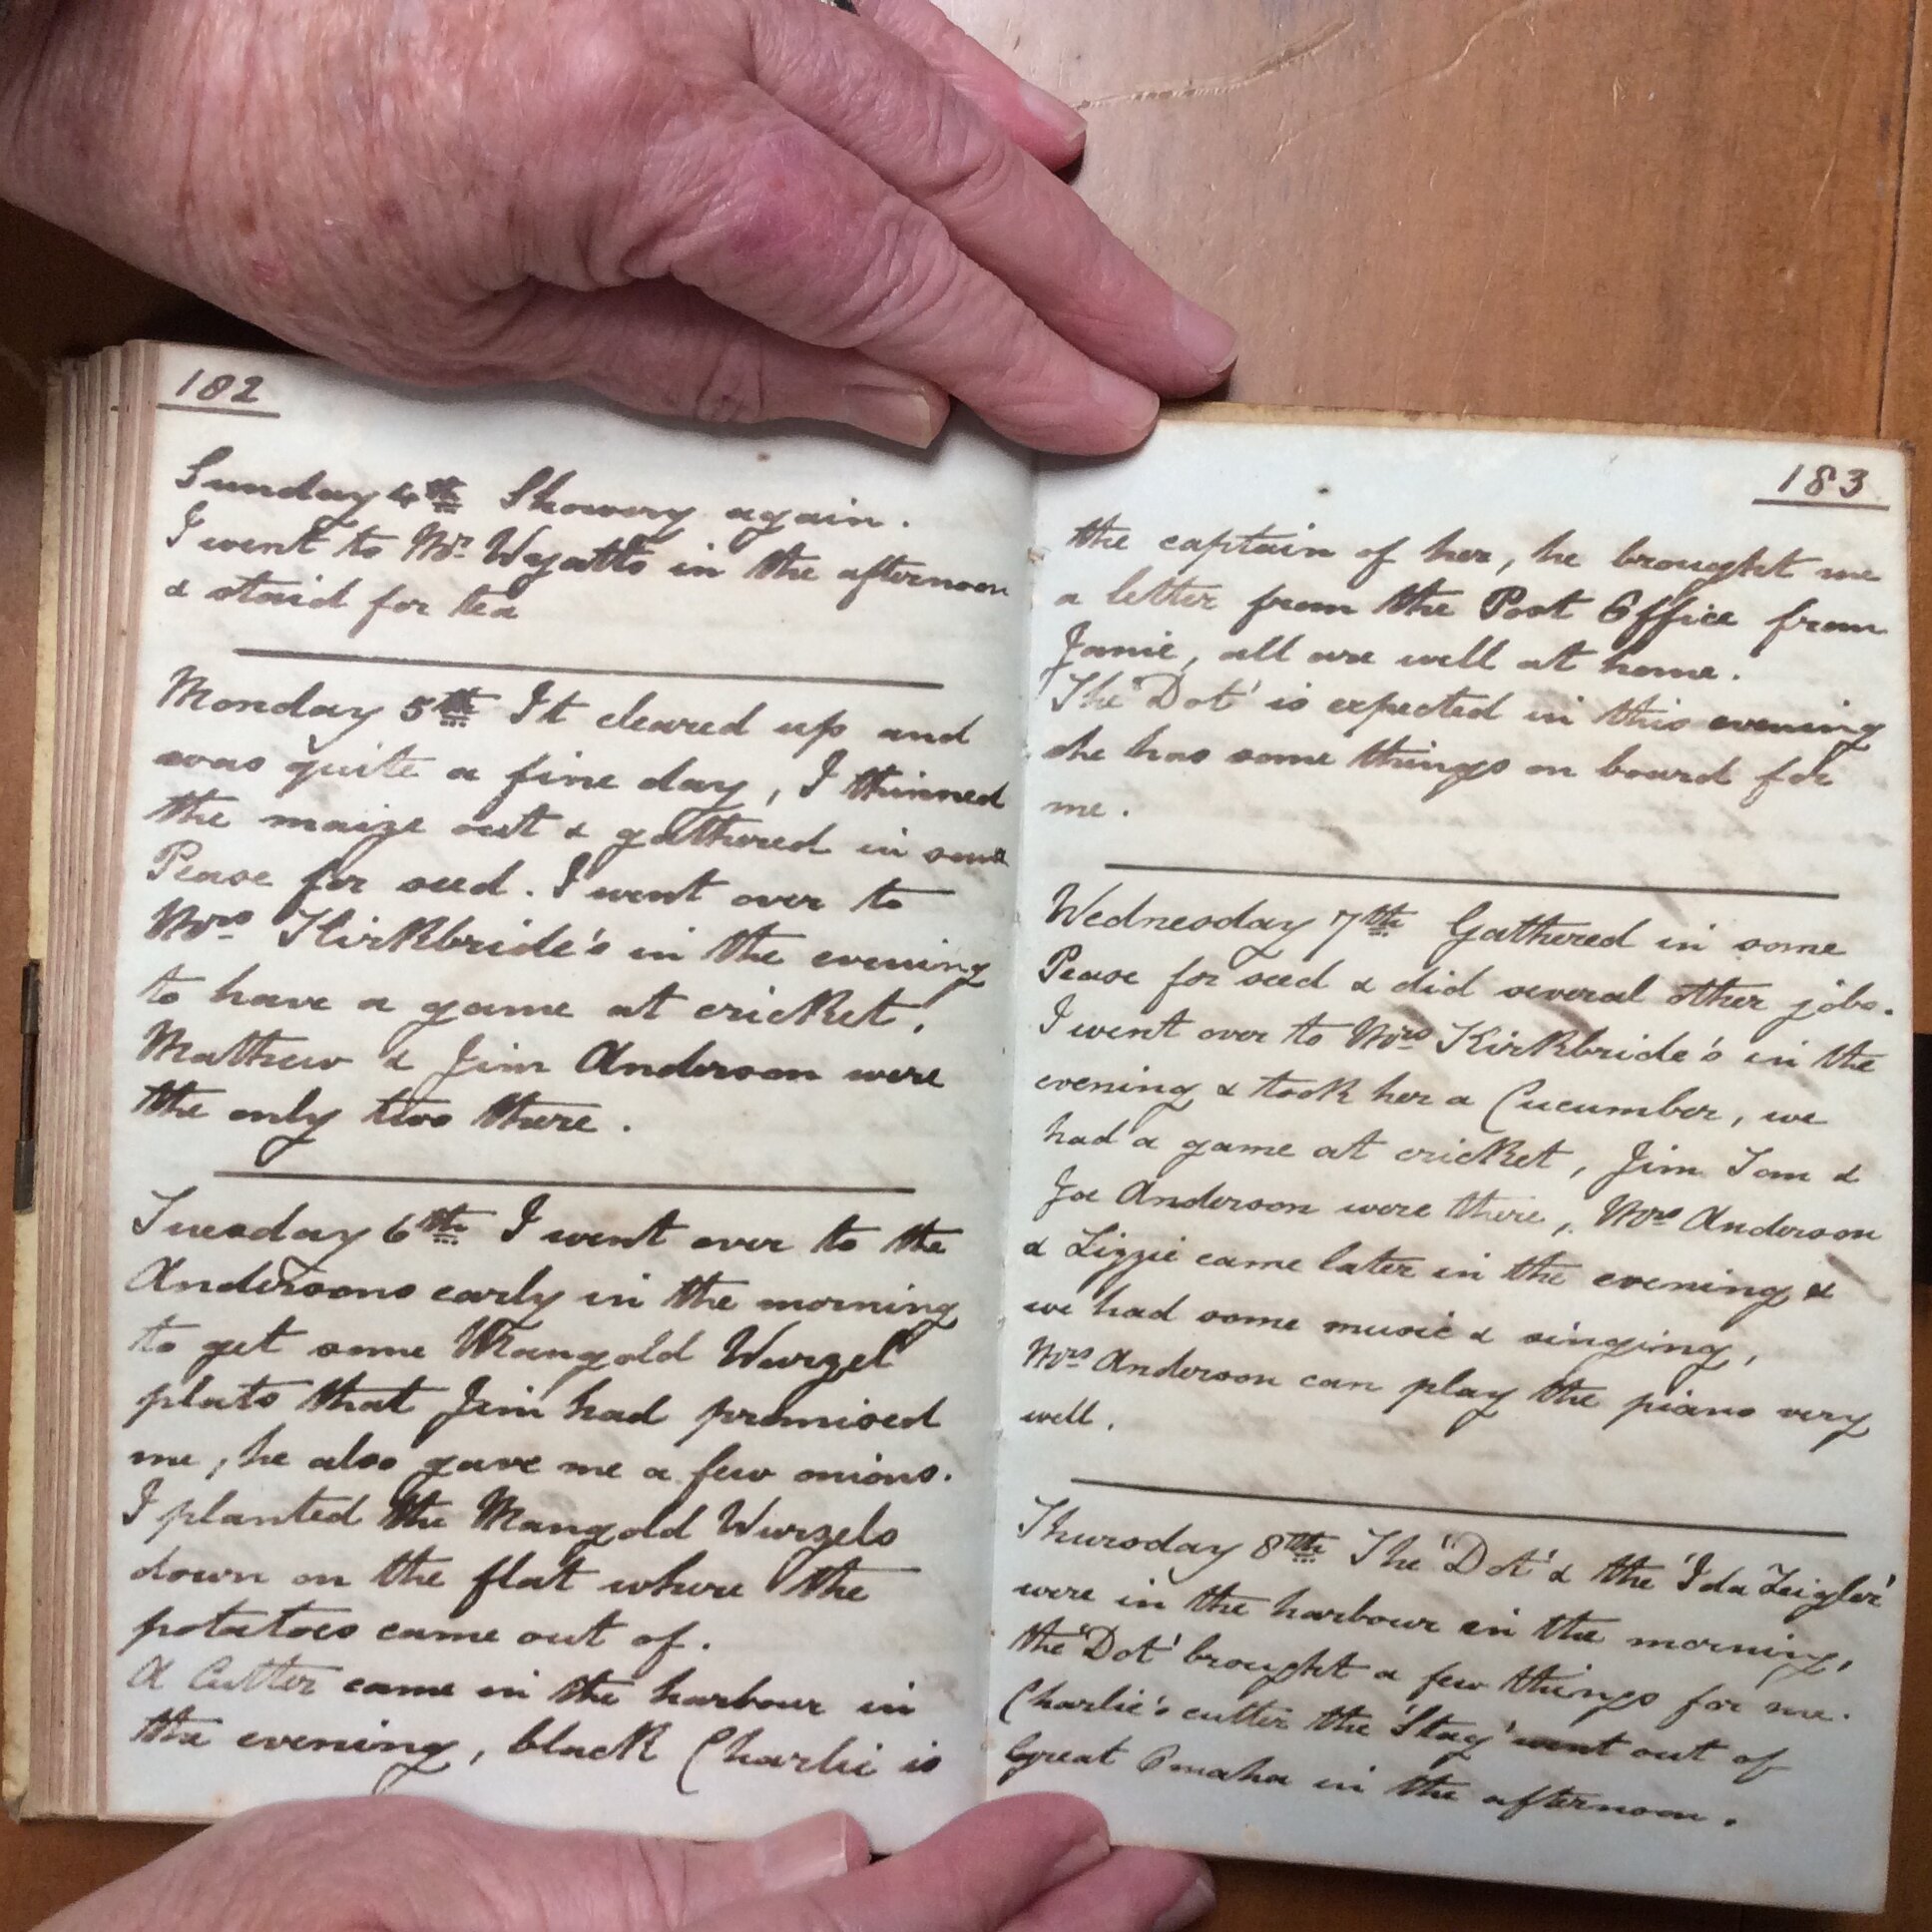 182
Sunday 4th Showery again.
I went to Mr Wyatts in the afternoon
& staid for tea
Monday 5th It cleared up and
was quite a fine day, I thinned
the maize out & gathered in some
Pease for seed. I went over to
Mrs Kirkbride's in the evening
to have a game at cricket,
Mathew & Jim Anderson were
the only two there.
Tuesday 6th I went over to the
Andersons early in the morning
to get some Mangold Wurzel
plats that Jim had promised
me, he also gave me a few onions.
I planted the Mangold Wurzels
down on the flat where the
potatoes came out of.
A Cutter came in the harbour in
the evening, black Charlie is
183
the captain of her, he brought me
a letter from the Post Office from
Janie, all are well at home.
The 'Dot' is expected in this evening
she has some things on board for
me.
Wednesday 7th Gathered in some
Pease for seed & did several other jobs.
I went over to Mrs Kirkbride's in the
evening & took her a Cucumber, we
had a game at cricket, Jim Tom &
Joe Anderson were there, Mrs Anderson
& Lizzie came later in the evening &
we had some music & singing,
Mrs Anderson can play the piano very
well.
Thursday 8th The 'Dot' & the 'Ida Zeigler'
were in the harbour in the morning,
the 'Dot' brought a few things for me.
Charlie's cutter the 'Stag' went out of
Great Omaha in the afternoon.